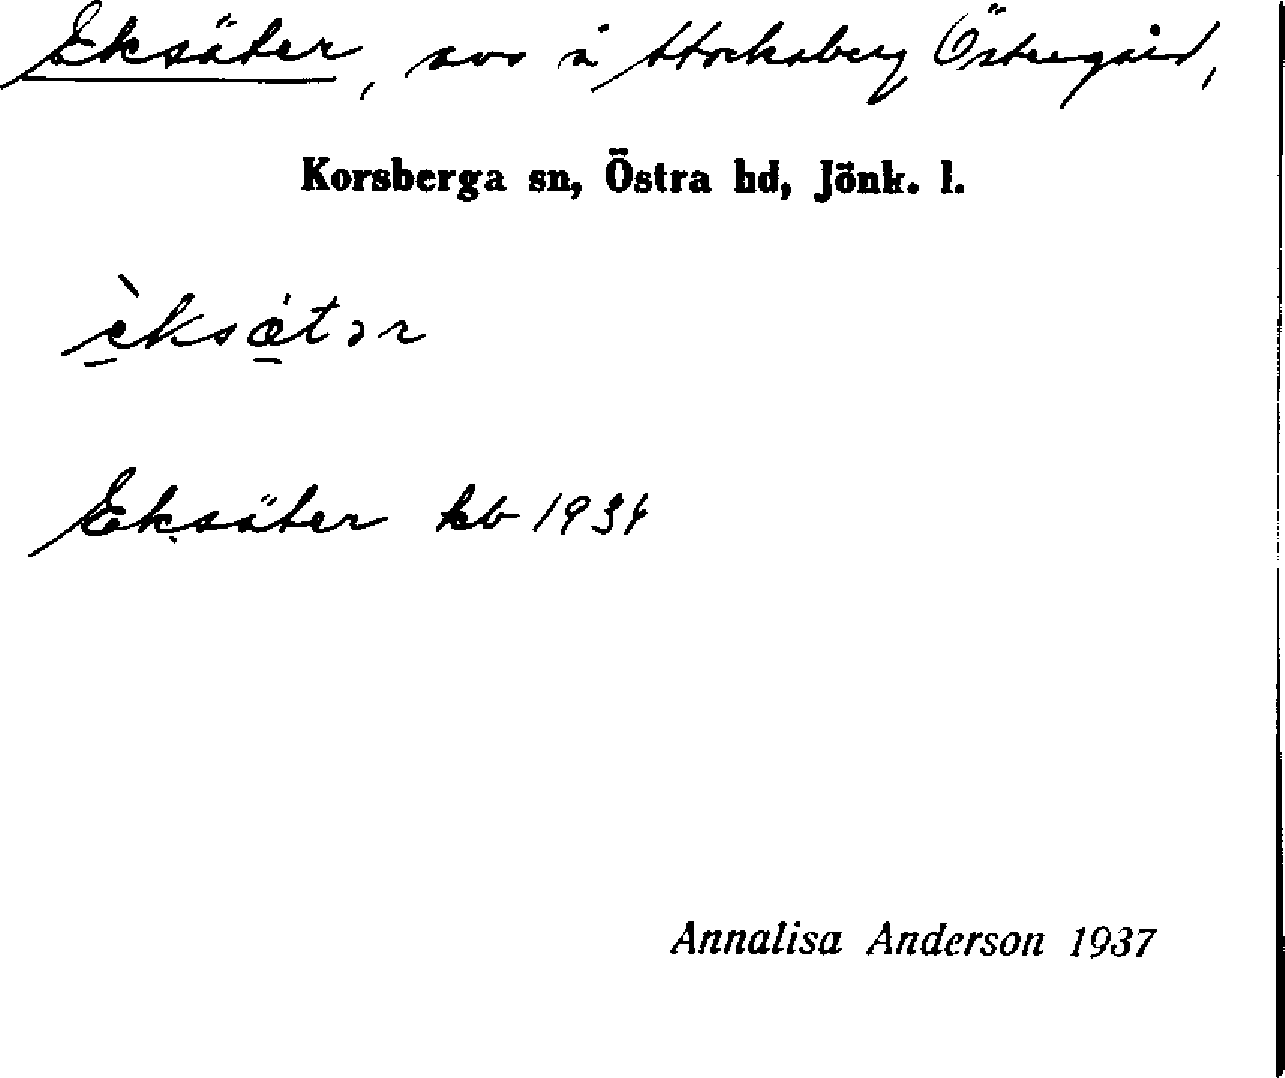 Eksäter, avs å Stockaberg Östregård,
Korsberga sn, Östra hd, Jönk. l.
èksætər
Eksäter kb 1934
Annalisa Anderson 1937